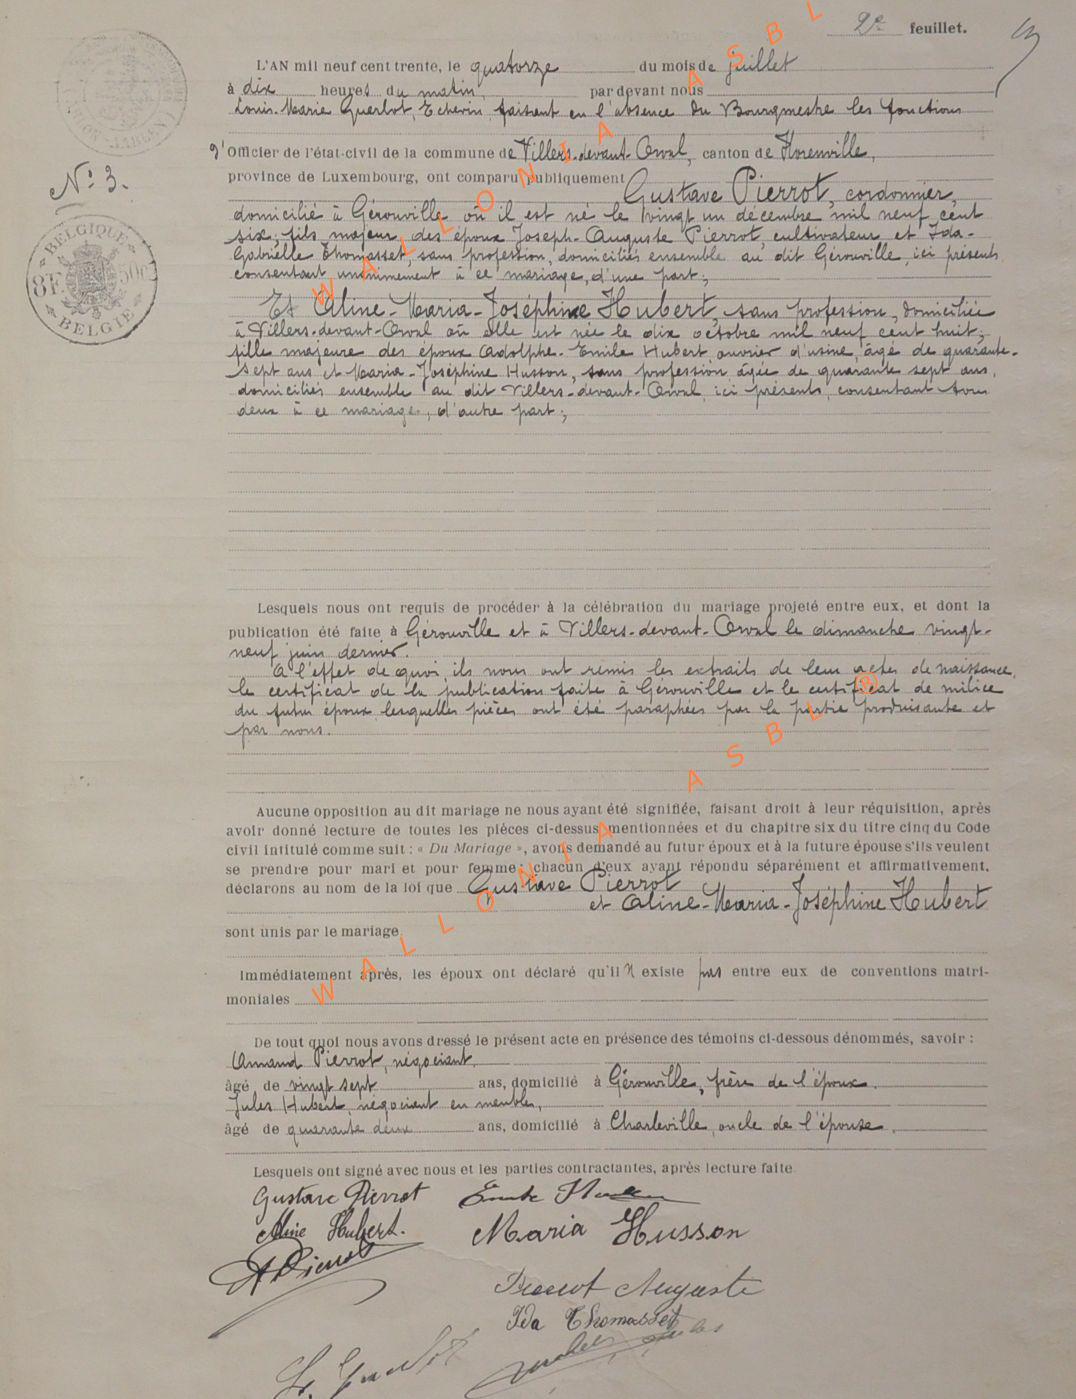 2e feuillet.
L'AN mil neuf cent trente, le quatorze du mois de juillet
à dix heures du matin, par devant nous
Louis-Marie Guerlot, Echevin, faisant en l'absence du Bourgmestre les fonctions
d'Officier de l'état-civil de la commune de Villers-devant-Orval, canton de Florenville,
N° 3.
province de Luxembourg, ont comparu publiquement Gustave Pierrot, cordonnier,
domicilié à Gérouville où il est né le vingt un décembre mil neuf cent
six, fils majeur des époux Joseph-Auguste Pierrot, cultivateur et Ida-
Gabrielle Thomasset, sans profession, domiciliés ensemble au dit Gérouville, ici présents
consentant unanimement à ce mariage, d'une part;
BELGIQUE
8F 50c
BELGIE
Et Aline-Maria-Joséphine Hubert, sans profession, domiciliée
à Villers-devant-Orval où elle est née le dix octobre mil neuf cent huit,
fille majeure des époux Adolphe-Emile Hubert ouvrier d'usine, âgé de quarante-
sept ans et Maria-Joséphine Husson, sans profession âgée de quarante sept ans,
domiciliés ensemble au dit Villers-devant-Orval, ici présents, consentant tous
deux à ce mariage, d'autre part;
Lesquels nous ont requis de procéder à la célébration du mariage projeté entre eux, et dont la
publication été faite à Gérouville et à Villers-devant-Orval le dimanche vingt-
neuf juin dernier.
A l'effet de quoi, ils nous ont remis les extraits de leur actes de naissance,
le certificat de la publication faite à Gérouville et le certificat de milice
du futur époux, lesquelles pièces ont été paraphées par la partie produisante et
par nous.
Aucune opposition au dit mariage ne nous ayant été signifiée, faisant droit à leur réquisition, après
avoir donné lecture de toutes les pièces ci-dessus mentionnées et du chapitre six du titre cinq du Code
civil intitulé comme suit : « Du Mariage », avons demandé au futur époux et à la future épouse s'ils veulent
se prendre pour mari et pour femme; chacun d'eux ayant répondu séparément et affirmativement,
déclarons au nom de la loi que Gustave Pierrot
et Aline-Maria-Joséphine Hubert
sont unis par le mariage.
Immédiatement après, les époux ont déclaré qu'il n'existe pas entre eux de conventions matri-
moniales
De tout quoi nous avons dressé le présent acte en présence des témoins ci-dessous dénommés, savoir :
Armand Pierrot, négociant,
âgé de vingt sept ans, domicilié à Gérouville, frère de l'époux.
Jules Hubert, négociant en meubles,
âgé de quarante deux ans, domicilié à Charleville, oncle de l'épouse.
Lesquels ont signé avec nous et les parties contractantes, après lecture faite.
Gustave Pierrot
Aline Hubert.
Maria Husson
A Pierrot
Pierrot Auguste
Ida Thomasset
WALLONIA ASBL
WALLONIA ASBL ®